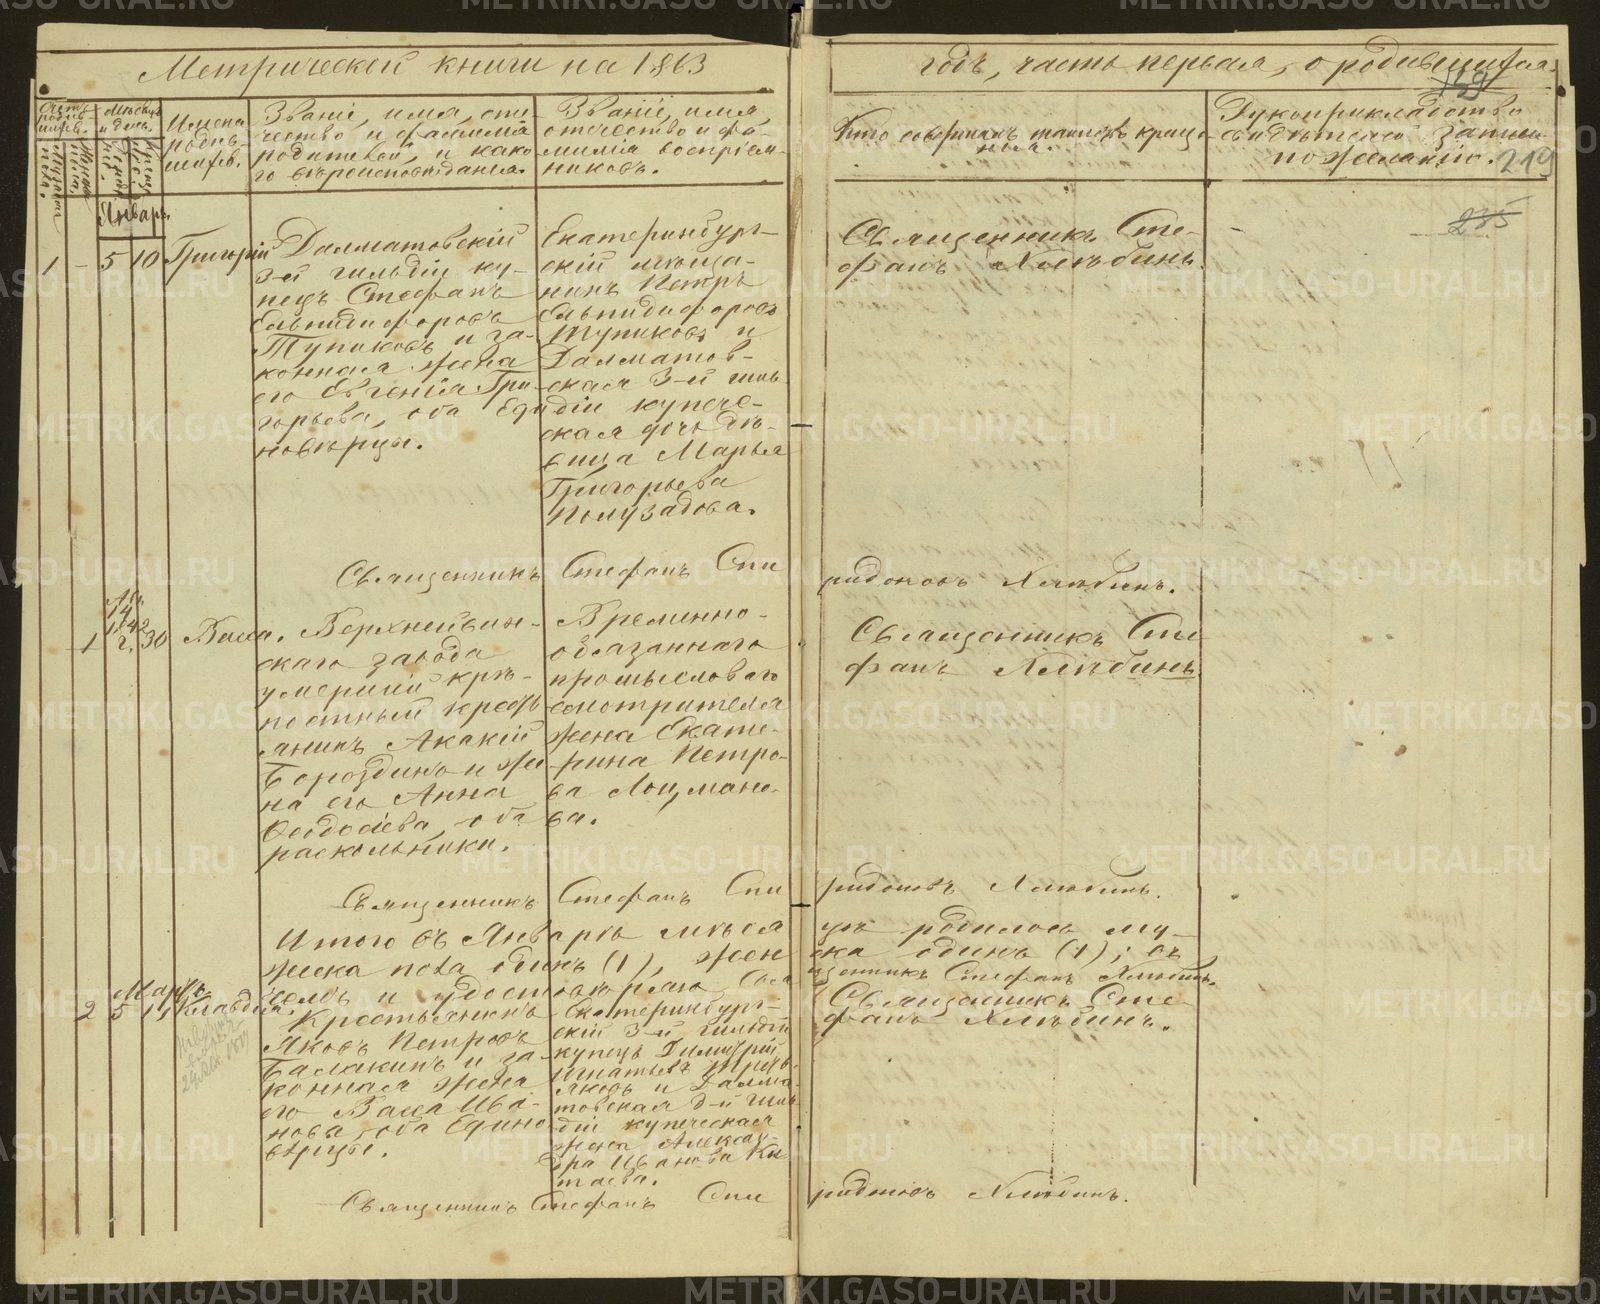 Метрической книги на 1863
годъ, часть первая, о родившихся.
Счетъ родив-
шихся.
Мужеска
пола.
Женска
пола.
Мѣсяцъ
и день.
Имена
родив-
шихся.
Званіе, имя, оте-
чество и фамилія
родителей, и како-
го вѣроисповѣданія.
Званіе, имя,
отечество и фа-
милія воспріем-
никовъ.
Кто совершалъ таинство креще-
нія.
Рукоприкладство
свидѣтелей записи
по желанію.
219
235
Январь.
1 - 5 10 Григорій
Далматовскій
3-й гильдіи ку-
пецъ Стефанъ
Ельпидифоровъ
Тупиковъ и за-
конная жена
его Евгенія Гри-
горьева, оба Еди-
новѣрцы.
Екатеринбург-
скій мѣща-
нинъ Петръ
Ельпидифоровъ
Тупиковъ и
Далматов-
ская 3-й гиль-
діи купече-
ская дочь дѣ-
вица Марья
Григорьева
Полузадова.
Священникъ Сте-
фанъ Хлѣбинъ.
-
Священникъ Стефанъ Спи
ридоновъ Хлѣбинъ.
1 14 1842 г. 30 Васса.
Верхнейвин-
скаго завода
умершій крѣ-
постный кресть-
янинъ Акакій
Бороздинъ и же-
на его Анна
Ѳеодосіева, оба
раскольники.
Временно-
обязаннаго
промысловаго
смотрителя
жена Екате-
рина Петро-
ва Лоцмано-
ва.
Священникъ Сте
фанъ Хлѣбинъ.
Священникъ Стефанъ Спи
ридоновъ Хлѣбинъ.
Итого въ Январѣ мѣся
цѣ родилось му-
жеска пола одинъ (1), жен
ска одинъ (1); въ
чемъ и удостовѣряю Свя
щенникъ Стефанъ Хлѣбинъ.
Мартъ.
2 5 Клавдія.
Крестьянинъ
Яковъ Петровъ
Балакинъ и за-
конная жена
его Васса Ива-
нова, оба Едино
вѣрцы.
Екатеринбург-
скій 3-й гильдіи
купецъ Димитрій
Игнатьевъ
и Далма-
товская 3-й гиль
діи купеческая
жена Александ-
ра Иванова Ки
таева.
Священникъ Сте
фанъ Хлѣбинъ.
Священникъ Стефанъ Спи
ридоновъ Хлѣбинъ.
METRIKI.GASO-URAL.RU